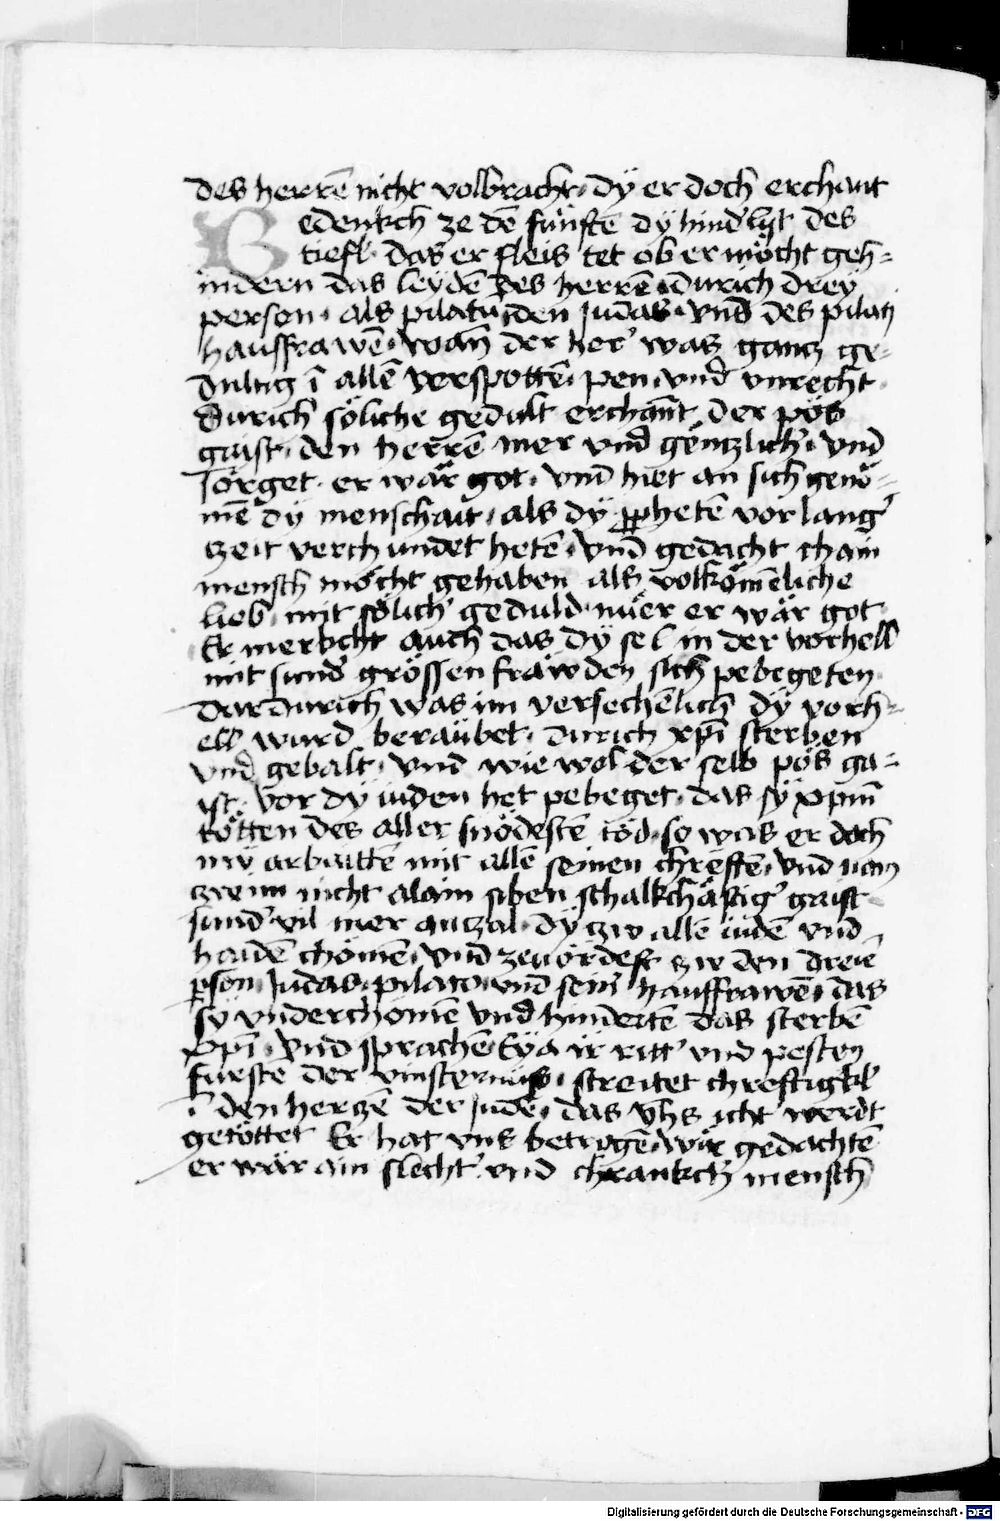 des herrē nicht volbracht · dy er doch erchant
Bedenkch ze dē fünftē dy hindʼlist des
tiefl · das er fleis tet ob er möcht geh-
indern das leydē des herrē durich drey
person · als pilatū den Judas · vnd des pilatʒ
hauffrawē · wan̄ der herʼ was gantz ge-
dultig ī allē verspottē · pen · vnd vnrecht ·
durich söliche gedult erchant der pös
gaist · den herrē mer vnd gentzlichʼ · vnd
sörget · er wär got · vnd hiet an sich genö-
mē dy menschait · als dy ꝓphetē vor langʼ
tzeit verchundet hetē · Vnd gedacht chain
mensch möcht gehaben als volkömēliche
lieb · mit sölichʼ geduld · nüer er wär got ·
Er merkcht auch das dy sel in der vorhell
mit sundʼ grössen fräwden sich pebegeten ·
Dardurich was im versechēlich dy vorh-
ell wurd beräubet · durich xp̄i sterben
vnd gebalt · vnd wie wol der selb pös ga-
ist · vor dy iuden het pebeget · das sy xp̄m
tötten des aller snödestē töd · so was er doch
nw arbaittē mit allē seinen chreftē · vnd nam
zw im nicht alain siben schalkchäftigʼ gaist
sundʼ vil mer antzal · dy tzw allē iudē vnd
haidē chömē · vnd zeuördest tzw den dreiē
ꝑson · Judas · pilato · vnd seinʼ hauffrawē · das
sy vnderchomē vnd hindertē das sterbē
xp̄i · Vnd sprachē Eya ir rittʼ vnd pesten
furste der vinsternüss · streitet chreftigkl̄
ī den hertzē der Judē · das vns icht werdt
getöttet Er hat vns betrogē · wir gedachtē
er wär ain slechtʼ vnd chrankchʼ mensch
Digitalisierung gefördert durch die Deutsche Forschungsgemeinschaft - DFG